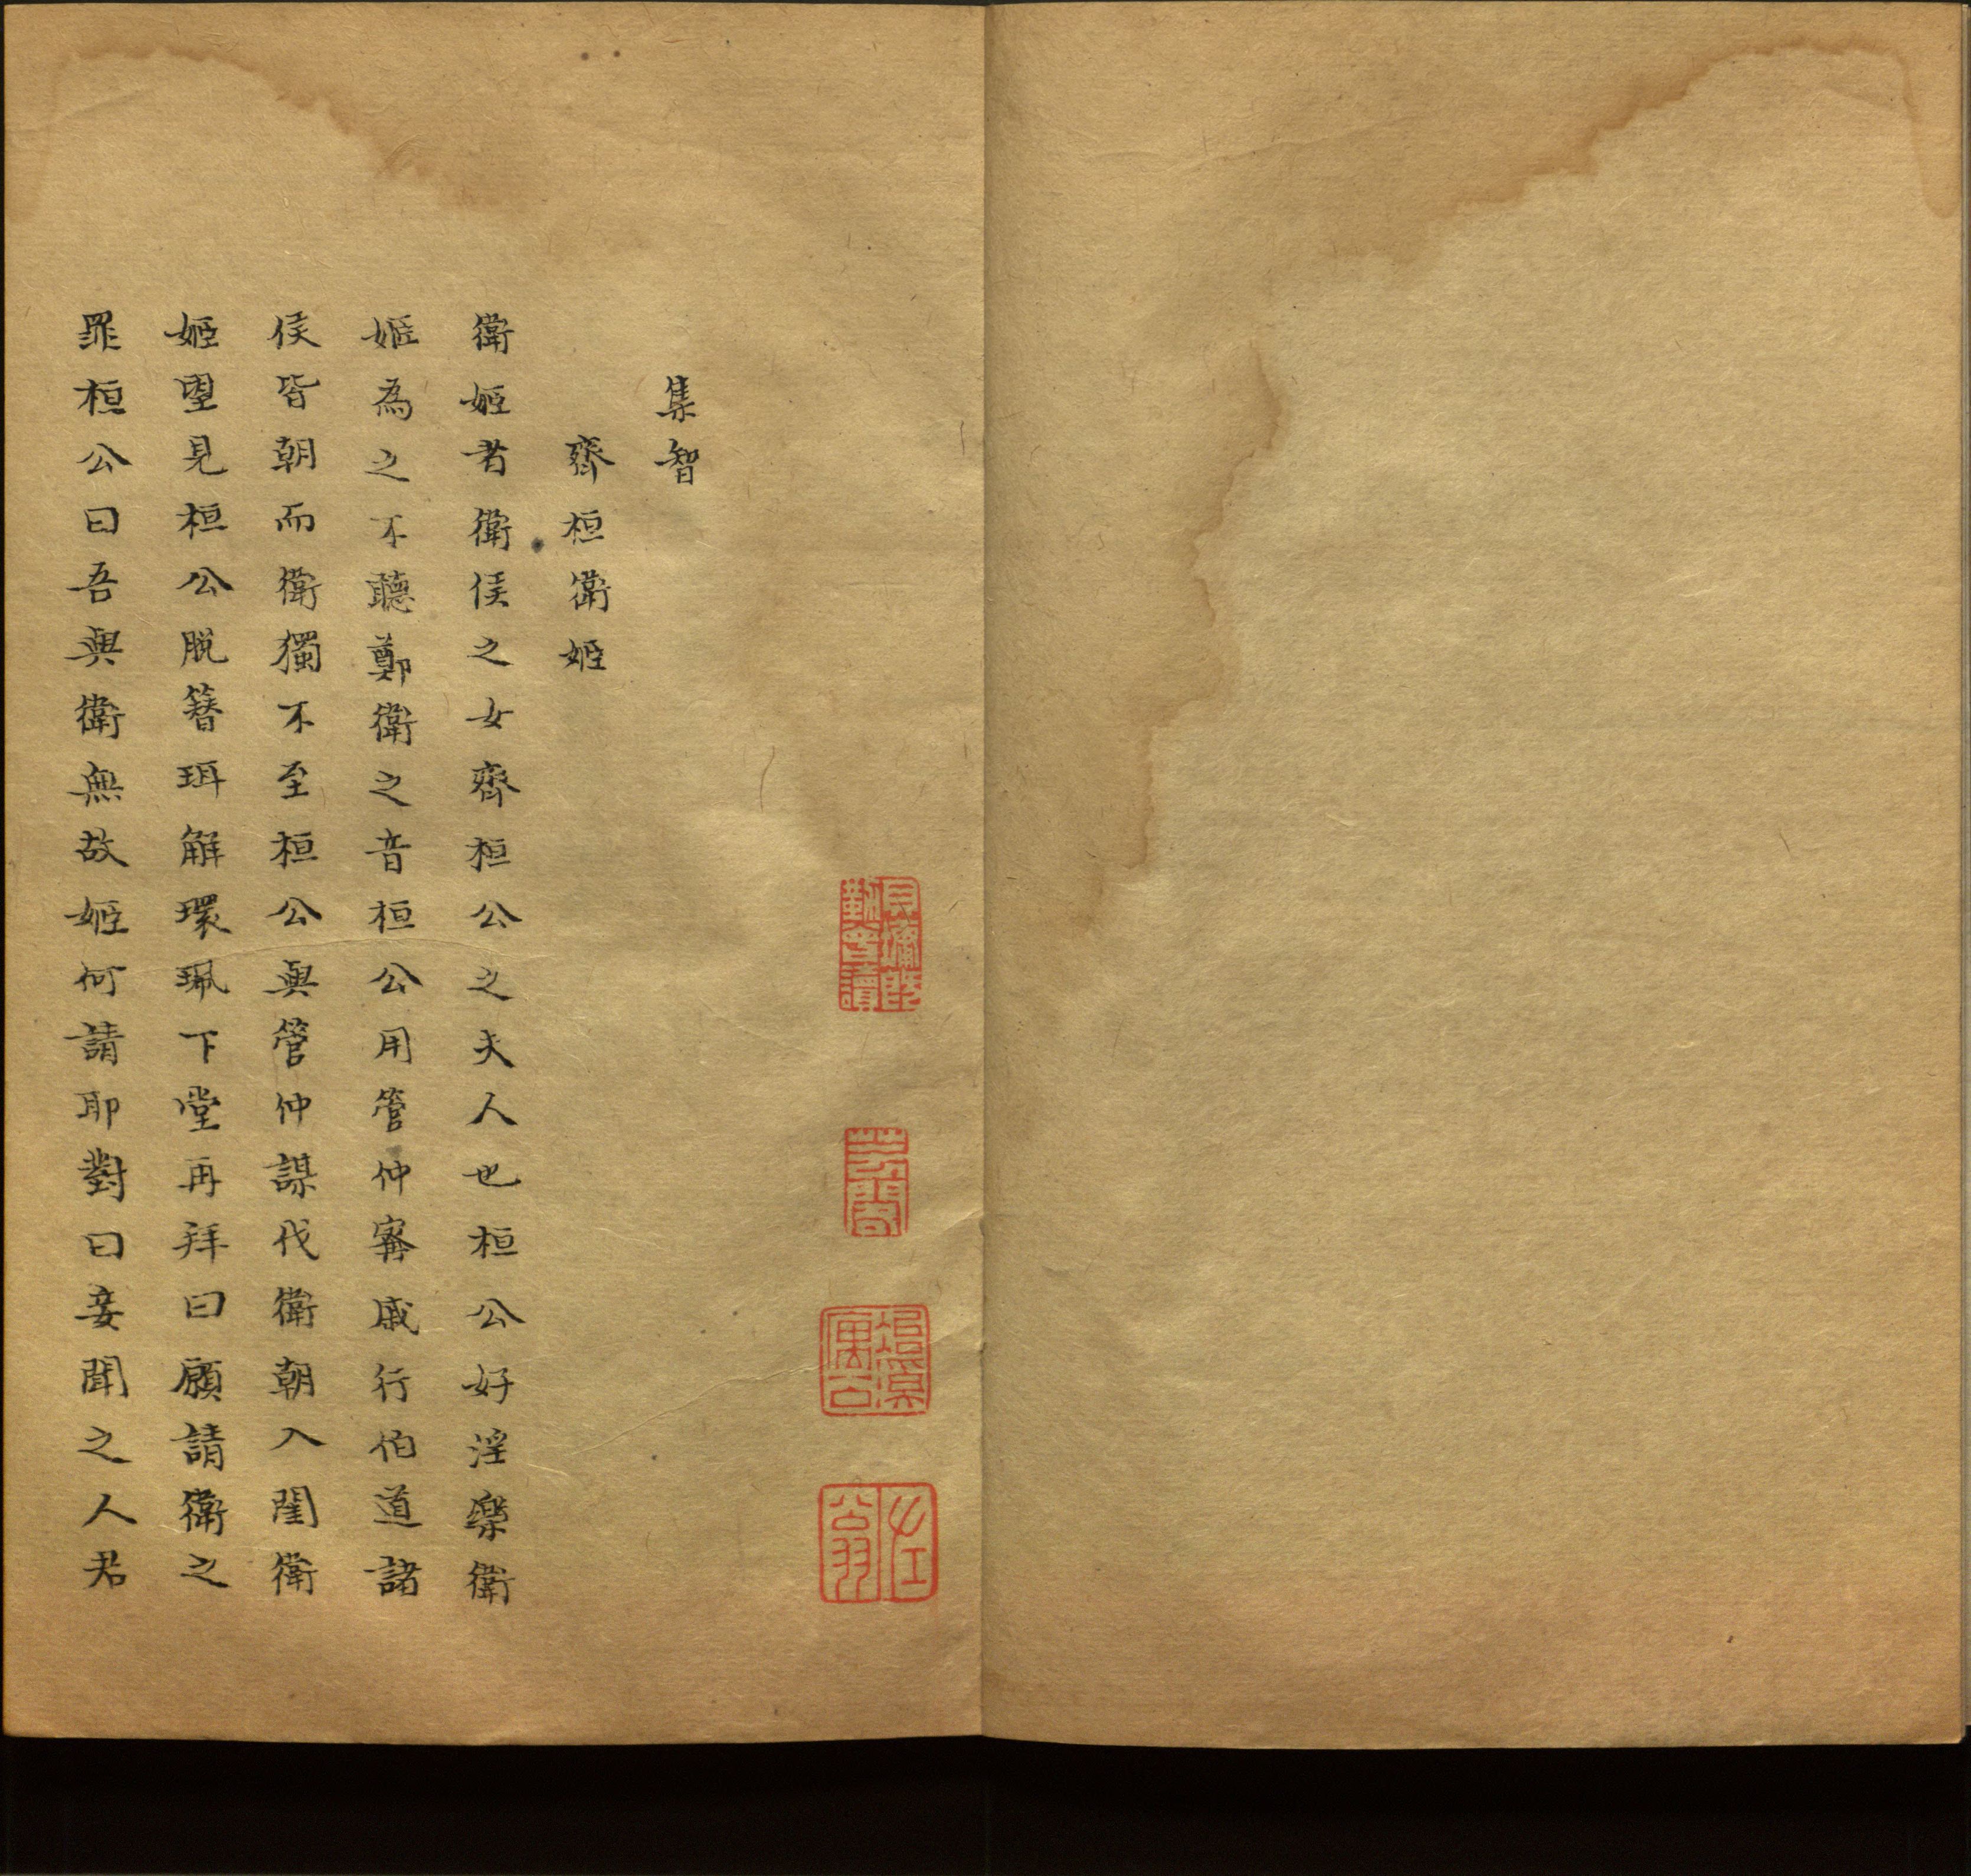 集智
齊桓衛姬
衛姬者衛侯之女齊桓公之夫人也桓公好淫樂衛
姬為之不聽鄭衛之音桓公用管仲甯戚行伯道諸
侯皆朝而衛獨不至桓公與管仲謀伐衛朝入閨衛
姬望見桓公脫簪珥解環珮下堂再拜曰願請衛之
罪桓公曰吾與衛無故姬何請耶對曰妾聞之人君